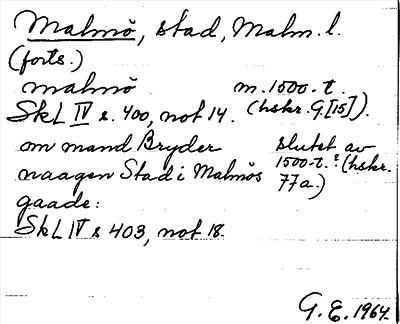 Malmö, stad, Malm. l.
(forts.)
malmö m. 1500-t.
SkL IV s. 400, not 14. (hskr. G [15]).
om mand Bryder slutet av
naagen Stad i Malmös 1500-t.? (hskr.
gaade: 77a.)
SkL IV s 403, not 18.
G. E. 1964.